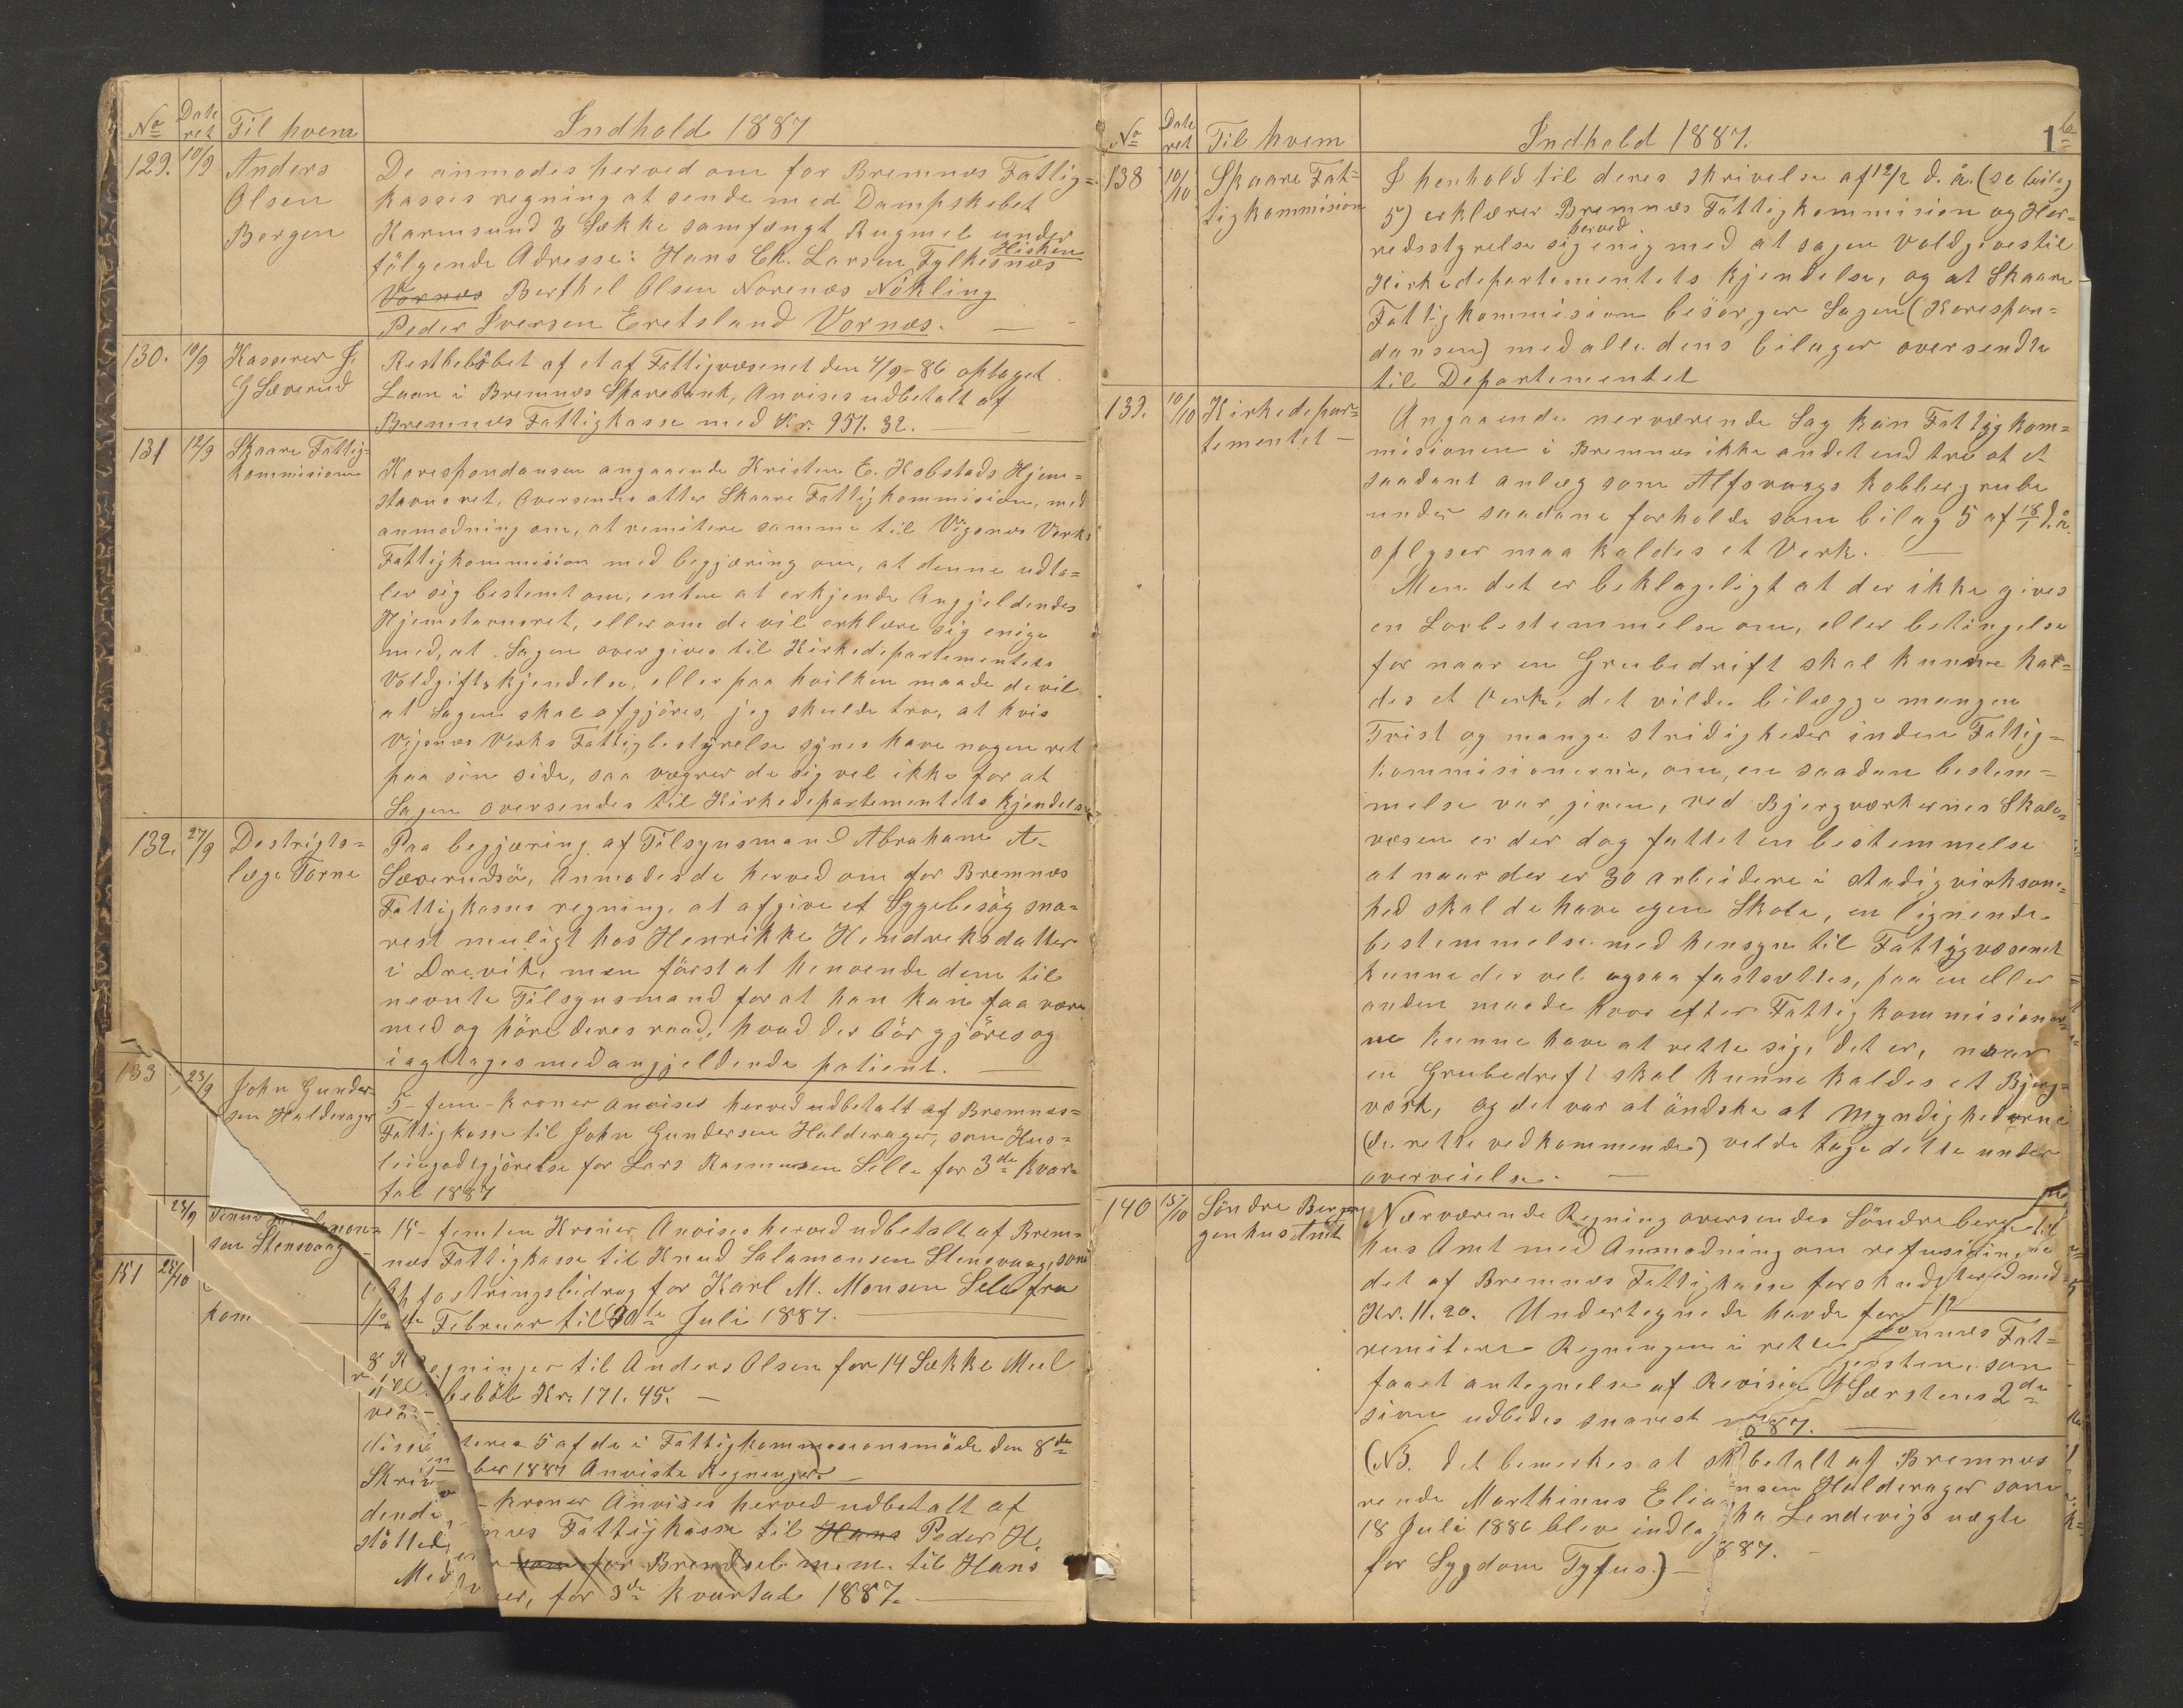 No Dateret Til hvem Indhold 1887
129. 10/9 Anders Olsen Bergen
De anmodes herved om for Bremnes Fattig=
kasses regning at sende med Dampskibet
Karmsund 3 Sække samfængt Rugmel under
følgende Adresse: Hans Chr. Larsen Fylkesnæs Hisken
Vornæs Berthel Olsen Norenæs Nökling
Peder Iversen Eretsland Vornæs.
130. 10/9 Kasserer J. G Særerud
Restbelöbet af et af Fattigvæsenet den 4/9-86 optaget
Laan i Bremnes Sparebank, Anvises udbetalt af
Bremnes Fattigkasse med Kr. 951.32.
131 12/9 Skaare Fattig=
kommision
Korespondansen angaaende Kristen E. Hobstads Hjem=
stavnsret, Oversendes atter Skaare Fattigkommision, med
anmodning om, at remitere samme til Vigsnes Verks
Fattigkommision med begjæring om, at denne udta=
ler sig bestemt om, enten at erkjende Angjeldendes
Hjemstavnsret, eller om de vil erklære sig enige
med, at Sagen overgives til Kirkedepartementets
Voldgiftskjendelse, eller paa hvilken maade de vil
at Sagen skal afgjöres, jeg skulde tro, at hvis
Vigsnes Verks Fattigbestyrelse synes have nogen ret
paa sin side, saa vægrer de sig vel ikke for at
Sagen oversendes til Kirkedepartementets Kjendelse
132. 27/9 Destrigts=
læge Torne
Paa begjæring af Tilsynsmand Abraham A.
Særerudsö, Anmodes de herved om for Bremnes
Fattigkasses regning, at afgive et Sygebesög sna=
rest muligt hos Henrikke Hendreksdatter
i Drevik, men först at henvende dem til
nevnte Tilsynsmand for at han kan faa være
med og höre deres raad, hvad der bör gjöres og
iagttages med angjeldende patient.
133 23/9 John Gunder=
sen Halderager
5- fem- Kroner Anvises herved udbetalt af Bremnes=
Fattigkasse til John Gundersen Halderager, som Hus=
leiegodtgjörelse for Lars Rasmusen Lille for 3de Kvar=
tal 1887
23/9 sen Stensvaag
15- femten Kroner Anvises herved udbetalt af Brem=
nes Fattigkasse til Knud Salamonsen Stensvaag, som
Opfostringsbidrag for Karl M. Monsen Lele fra
Februar til Juli 1887.
151 25/10
kom
Regninger til Anders Olsen for 14 Sække Meel
belöb Kr. 171.45.
5 af de i Fattigkommissionsmöde den 8de
ber 1887 Anviste Regninger
Kroner Anvises herved udbetalt af
Fattigkasse til Hans Peder H.
for Brendsel m.m. til Hans
for 3de Kvartal 1887.
No Dateret Til hvem Indhold 1887. 1
138 10/10 Skaare Fat=
tigkommision
I henhold til deres skrivelse af 12/2 d. å. (se bilag
5) erklærer Bremnes Fattigkommision og Her=
redsstyrelse sig herved enig med at sagen Voldgives til
Kirkedepartementets Kjendelse, og at Skaare
Fattigkommision besörger Sagen (Korespon=
dansen) med alle dens bilager oversendte
til Departementet
139. 10/10 Kirkedepar=
tementet
Angaaende nerværende Sag kan Fattigkom=
misionen i Bremnes ikke andet end tro at et
saadant anlæg som Alfsvaags Kobbergrube
under saadane forholde som bilag 5 af 18/1 d. å.
oplyser maa kaldes et Verk.
Men det er beklageligt at der ikke gives
en Lovbestemmelse om, eller betingelse
for naar en Grubedrift skal kunne kal=
des et Verk, det vilde bilægge mangen
Trist og mange stridigheder inden Fattig=
kommisionerne, om, en saadan bestem=
melse var given, ved Bjergværkernes Skole
væsen er der dog fattet en bestemmelse
at naar der er 30 arbeidere i stadig virksom=
hed skal de have egen Skole, en lignende
bestemmelse med hensyn til Fattigvæsenet
kunne der vel ogsaa fastsættes, paa en eller
anden maade hvor efter Fattigkommisioner
ne kunne have at rette sig, det er, naar
en Grubedreft skal kunne kaldes et Bjerg=
verk, og det var at öndske at Myndighederne
(de rette vedkommende) velde tage dette under
overveielse.
140 15/10 Söndre Bergen
genhus Amt
Nærværende Regning oversendes Söndre berg
hus Amt med Anmodning om refusi
det af Bremnes Fattigkasse forskud
Kr. 11.20. Undertegnede havde for
remitere Regningen i rette Fat=
faaet antegnelse af Revisi som
sion udbedes snarest 2de
887.
(NB. det bemerkes at betalt af Bremnes
rende Marthinus Elia Halderager som
18 Juli 1886 blev indlag Lenderigs nægte
for Sygdom Tyfus.) 887.